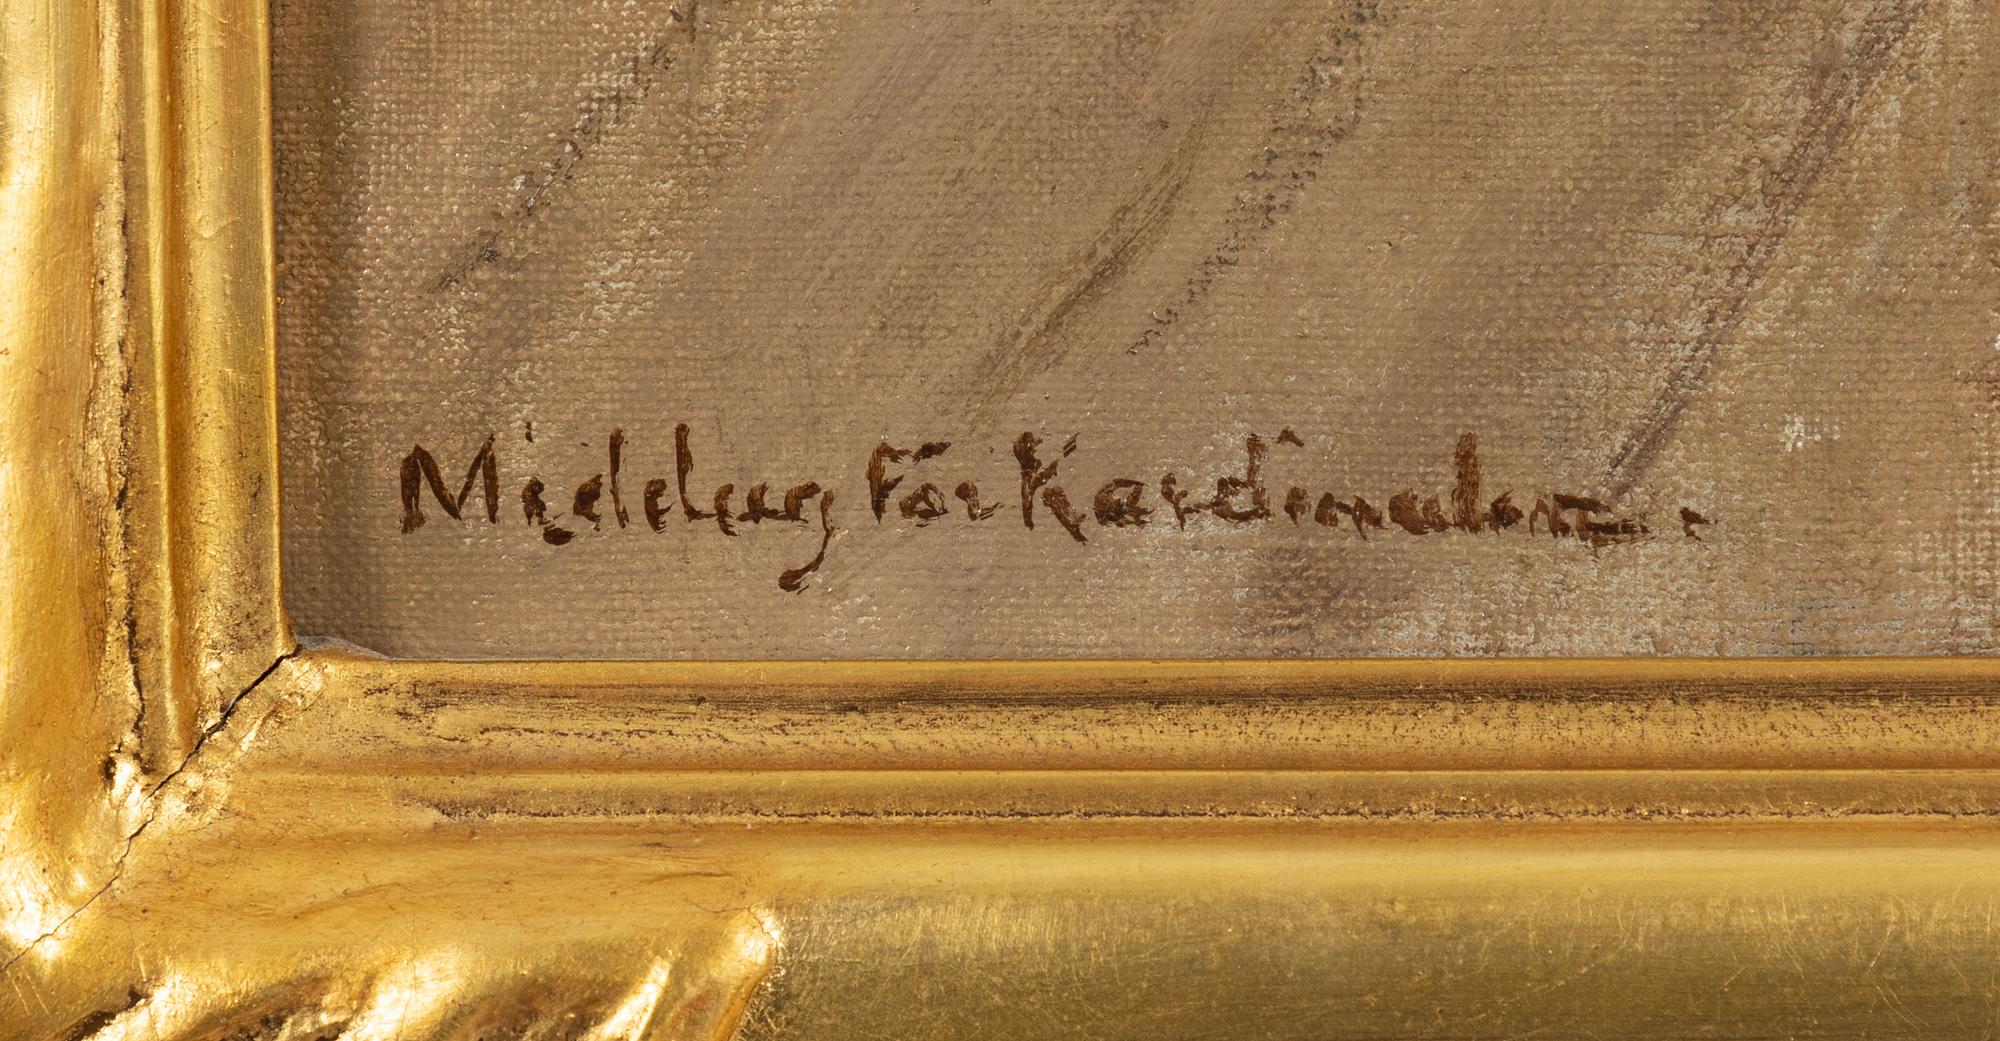 Middag För Kardinalen.